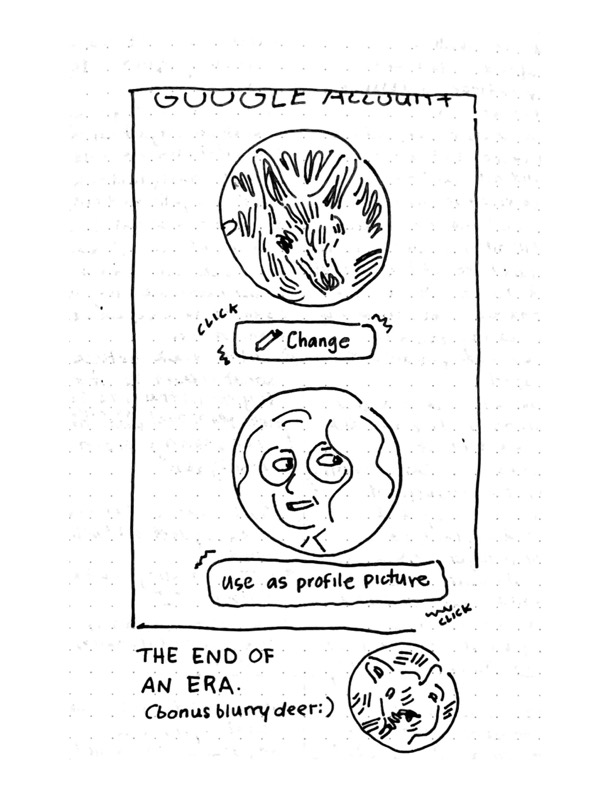 GOOGLE Account
CLICK
Change
use as profile picture
CLICK
THE END OF
AN ERA.
(bonus blurry deer:)